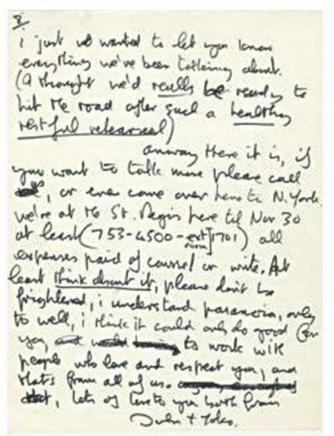 8.
i just wanted to let you know
everything we've been talking about.
(I thought we'd really be ready to
hit the road after such a healthy
restful rehearsal)
anyway there it is, if
you want to talk more please call
us, or even come over here to N. York.
we're at the St. Regis here til Nov 30
at least (753-4500-ext/room 1701) all
expenses paid of course! or write. At
least think about it, please don't be
frightened, i understand paranoia, only
to well, i think it could only do good for
you, to work with
people who love and respect you, and
that's from all of us.
lots of love to you both from
John + Yoko.